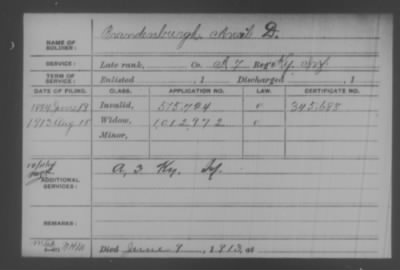 NAME OF SOLDIER: Brandenburgh, D.
SERVICE: Late rank, Co. A 7 Reg't Ky. Inf.
TERM OF SERVICE: Enlisted , 1 Discharged , 1
DATE OF FILING. CLASS. APPLICATION NO. LAW. CERTIFICATE NO.
June 19 Invalid, 515,704 345,688
1913 Aug 18 Widow, 1,012,972
Minor,
ADDITIONAL SERVICES: A, 3 Ky.
REMARKS:
Died June 8, 1913, at